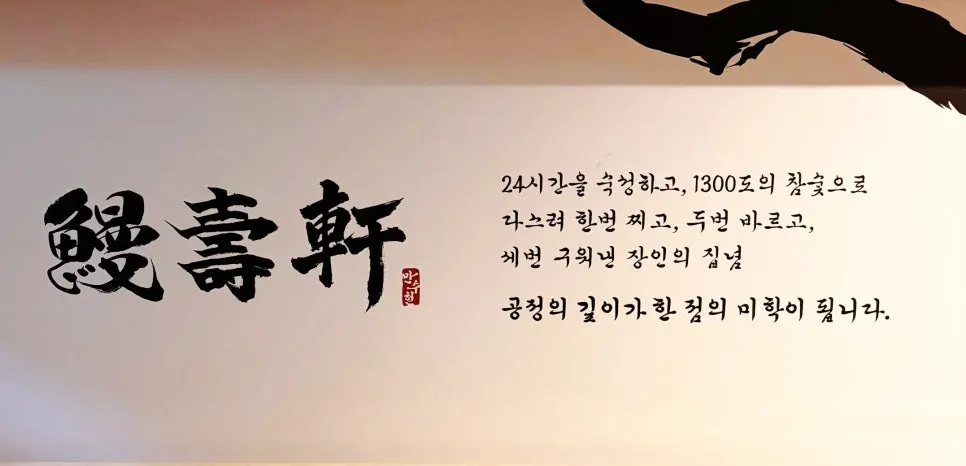 鰻壽軒
만수헌
24시간을 숙성하고, 1300도의 참숯으로
다스려 한번 찌고, 두번 바르고,
세번 구워낸 장인의 집념
공정의 깊이가 한 점의 미학이 됩니다.